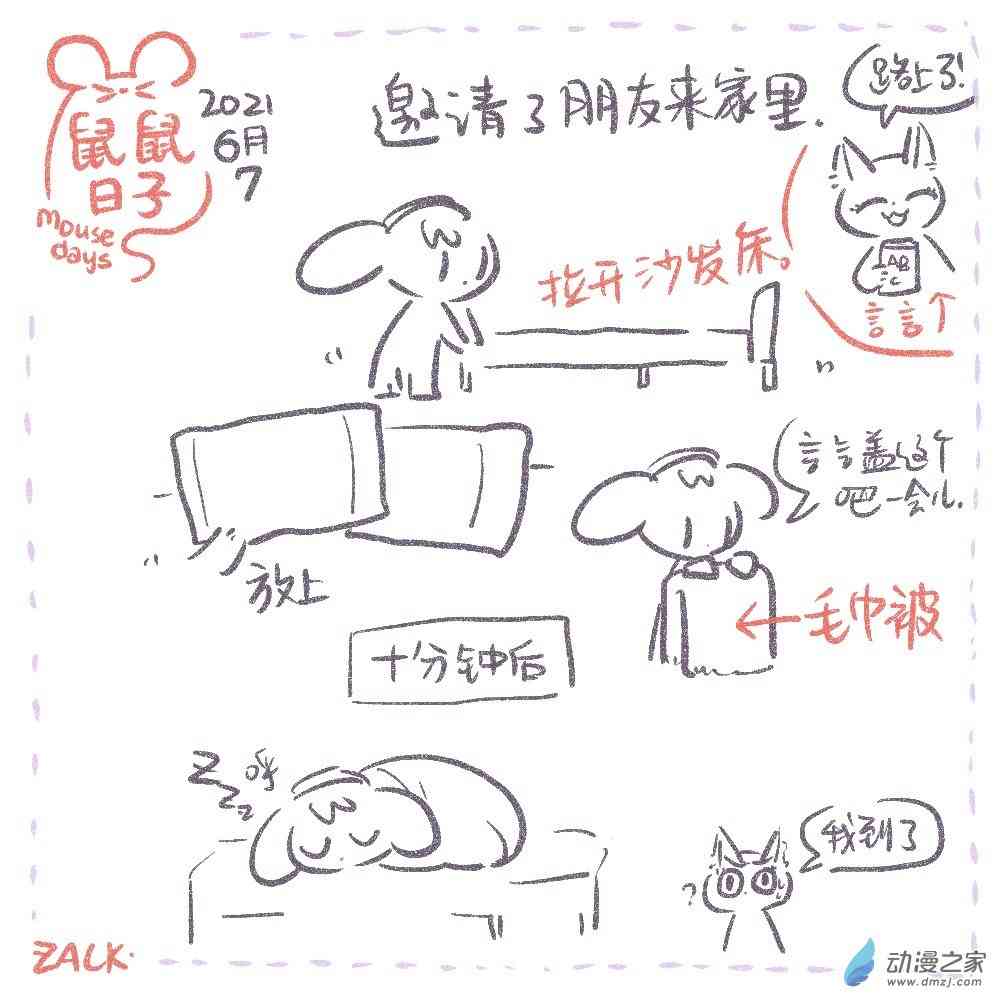 鼠鼠
日子
mouse
days
2021
6月
7
邀请了朋友来家里.
路上了!
ABC
言言个
拉开沙发床。
放上
言言盖这个
吧一会儿.
毛巾被
十分钟后
Z
z
z
呼
?
我到了
ZALK.
动漫之家
www.dmzj.com